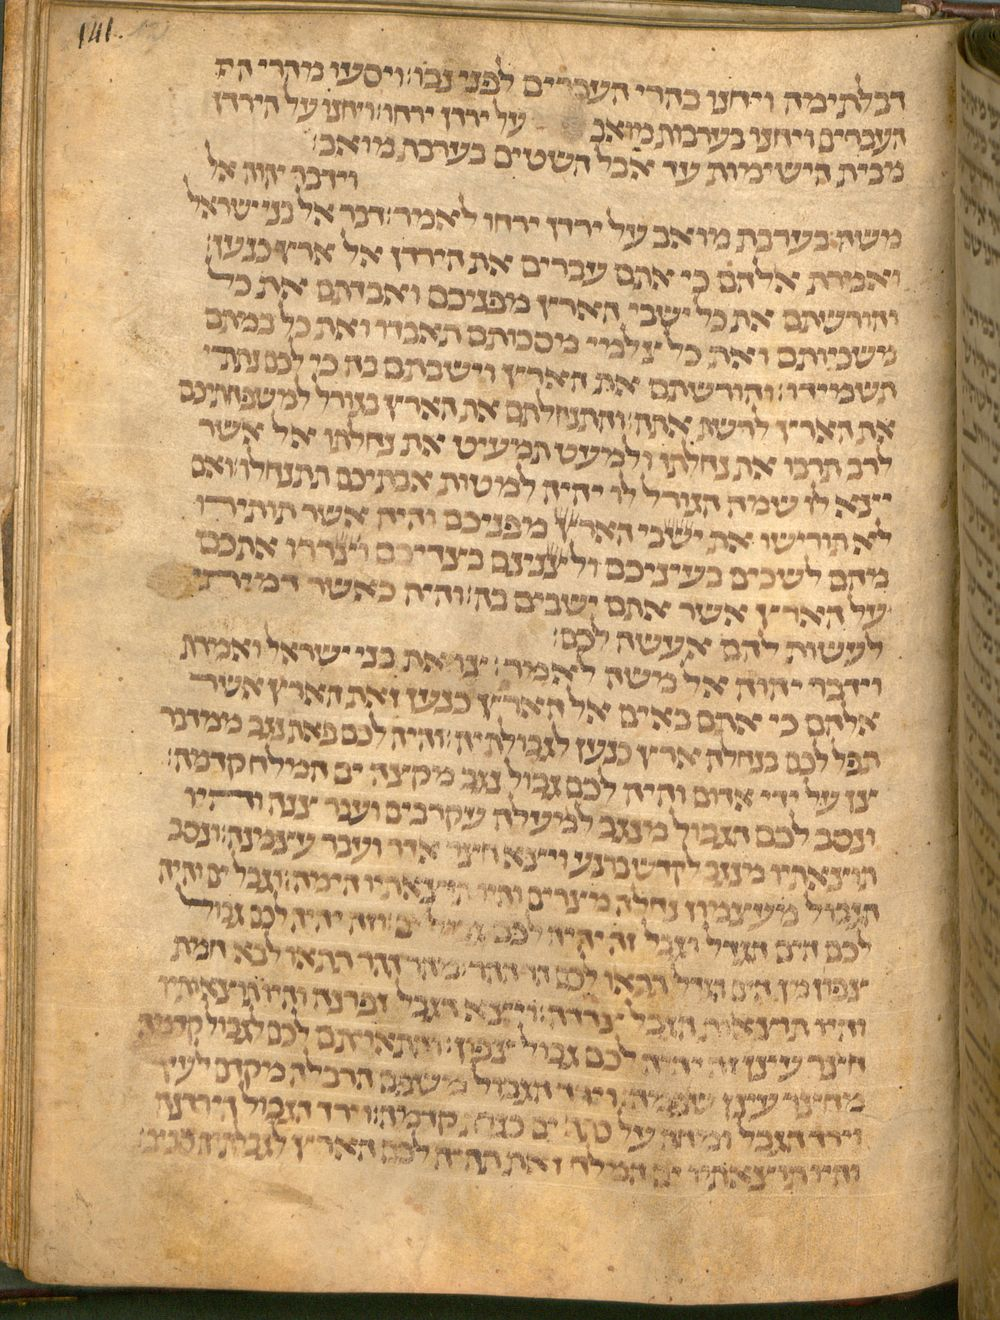 141.
דבלתימה ויחנו בהרי העברים לפני נבו: ויסעו מהרי הה
העברים ויחנו בערבות מואב על ירדן ירחו: ויחנו על הירדן
מבית הישימות עד אבל השטים בערבת מואב:
וידבר יהוה אל
משה בערבת מואב על ירדן ירחו לאמר: דבר אל בני ישראל
ואמרת אלהם כי אתם עברים את הירדן אל ארץ כנען:
והורשתם את כל ישבי הארץ מפניכם ואבדתם את כל
משכיותם ואת כל צלמי מסכותם תאבדו ואת כל במתם
תשמידו: והורשתם את הארץ וישבתם בה כי לכם נתתי
את הארץ לרשת אתה: והתנחלתם את הארץ בגורל למשפחתיכם
לרב תרבו את נחלתו ולמעט תמעיט את נחלתו אל אשר
יצא לו שמה הגורל לו יהיה למטות אבתיכם תתנחלו: ואם
לא תורישו את ישבי הארץ מפניכם והיה אשר תותירו
מהם לשכים בעיניכם ולצנינם בצדיכם וצררו אתכם
על הארץ אשר אתם ישבים בה: והיה כאשר דמיתי
לעשות להם אעשה לכם:
וידבר יהוה אל משה לאמר: צו את בני ישראל ואמרת
אלהם כי אתם באים אל הארץ כנען זאת הארץ אשר
תפל לכם בנחלה ארץ כנען לגבולתיה: והיה לכם פאת נגב ממדבר
צן על ידי אדום והיה לכם גבול נגב מקצה ים המלח קדמה:
ונסב לכם הגבול מנגב למעלה עקרבים ועבר צנה והיו
תוצאתיו מנגב לקדש ברנע ויצא חצר אדר ועבר עצמנה: ונסב
הגבול מעצמון נחלה מצרים והיו תוצאתיו הימה: וגבל ים והיה
לכם הים הגדל וגבל זה יהיה לכם גבול ים: וזה יהיה לכם גבול
צפון מן הים הגדל תתאו לכם הר ההר: מהר ההר תתאו לבא חמת
והיו תוצאות הגבל צדדה: ויצא הגבל זפרנה והיו תוצאתיו
חצר עינן זה יהיה לכם גבול צפון: והתאויתם לכם לגבול קדמה
מחצר עינן שפמה: וירד הגבול משפם הרבלה מקדם לעין
וירד הגבל ומחה על כתף ים כנרת קדמה: וירד הגבול הירדנה
והיו תוצאתיו ים המלח זאת תהיה לכם הארץ לגבלתיה סביב: